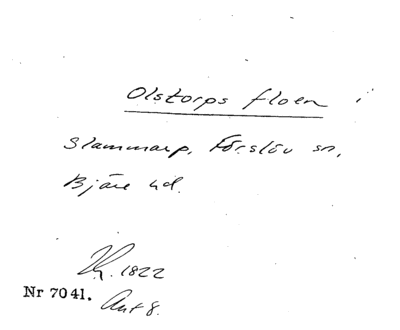 Olstorps floen i
Slammarp, Förslöv sn,
Bjäre hd.
1822
Nr 7041. Akt 8.